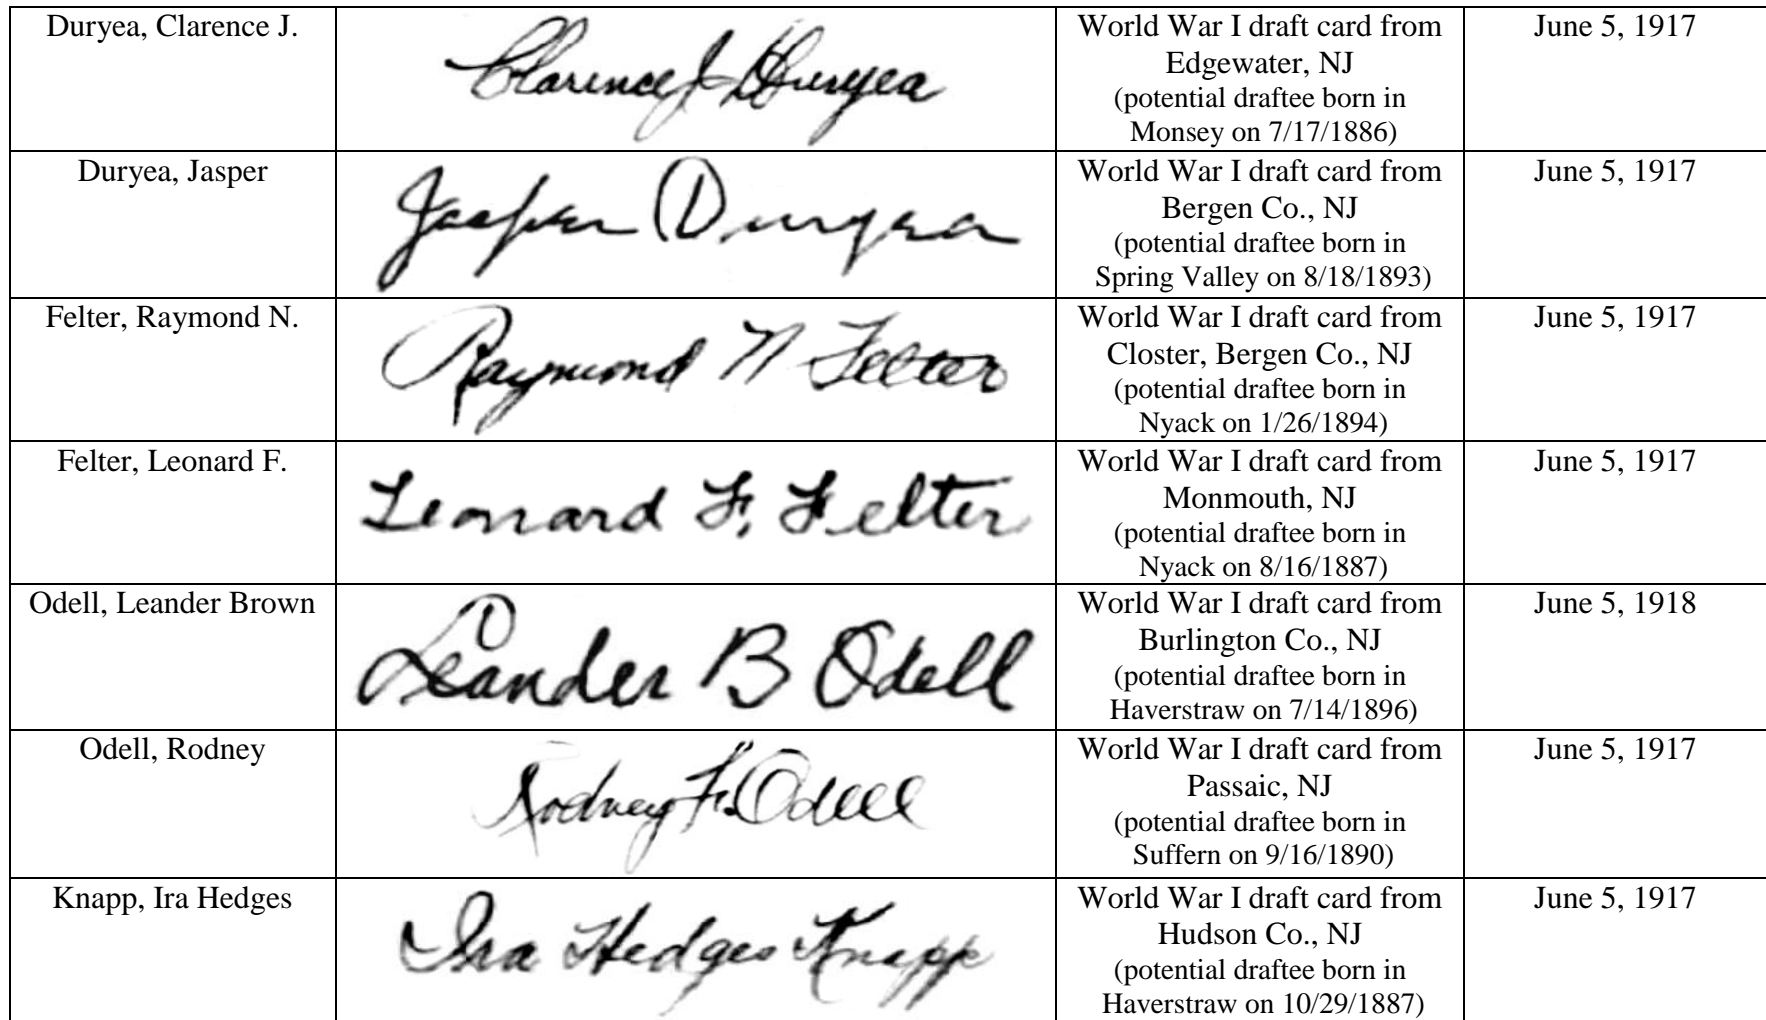 Duryea, Clarence J.
Clarence J Duryea
World War I draft card from
Edgewater, NJ
(potential draftee born in
Monsey on 7/17/1886)
June 5, 1917
Duryea, Jasper
Jasper Duryea
World War I draft card from
Bergen Co., NJ
(potential draftee born in
Spring Valley on 8/18/1893)
June 5, 1917
Felter, Raymond N.
Raymond N Felter
World War I draft card from
Closter, Bergen Co., NJ
(potential draftee born in
Nyack on 1/26/1894)
June 5, 1917
Felter, Leonard F.
Leonard F. Felter
World War I draft card from
Monmouth, NJ
(potential draftee born in
Nyack on 8/16/1887)
June 5, 1917
Odell, Leander Brown
Leander B Odell
World War I draft card from
Burlington Co., NJ
(potential draftee born in
Haverstraw on 7/14/1896)
June 5, 1918
Odell, Rodney
Rodney F. Odell
World War I draft card from
Passaic, NJ
(potential draftee born in
Suffern on 9/16/1890)
June 5, 1917
Knapp, Ira Hedges
Ira Hedges Knapp
World War I draft card from
Hudson Co., NJ
(potential draftee born in
Haverstraw on 10/29/1887)
June 5, 1917